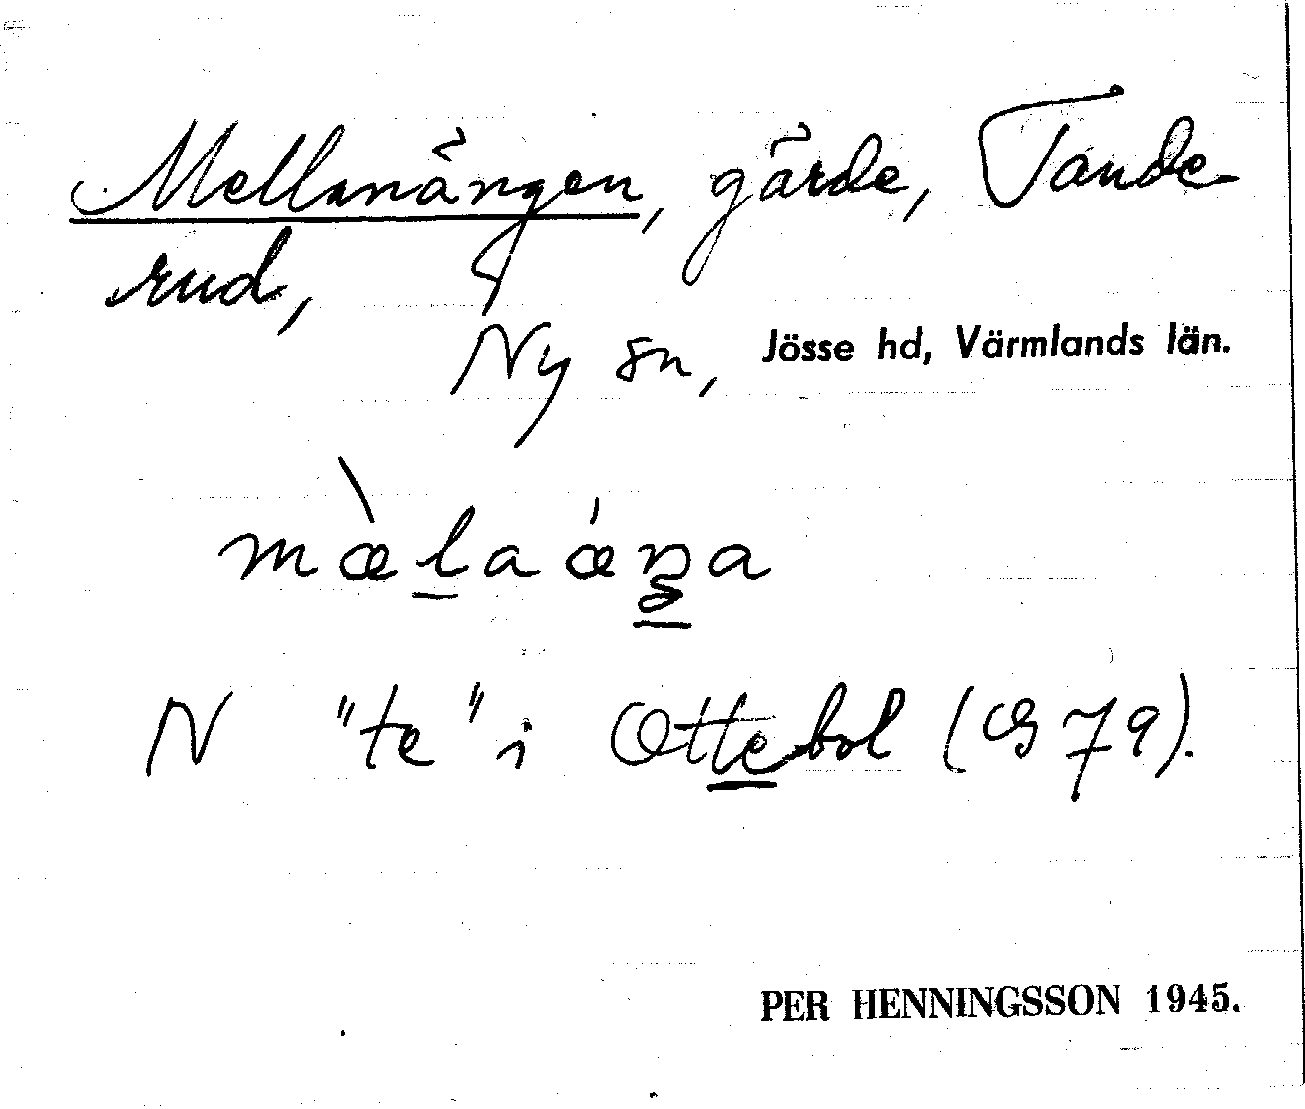 Mellanängen, gärde, Tande-
rud,
Ny sn, Jösse hd, Värmlands län.
mæ̀l̲aǽŋ̲a
N "te" i Ottebol (G 79).
PER HENNINGSSON 1945.